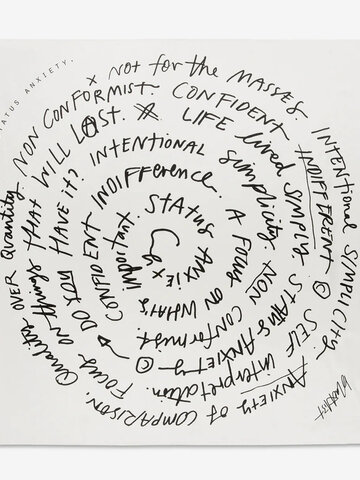 TATUS ANXIETY.
x Not for the MASSES. INTENTIONAL SIMPLICITY. ANXIETY of COMPARISON.
Quality over Quantity NON CONFORMIST CONFIDENT INDIFFERENT © SELF interpretation.
Focus on things that will LAST. LIFE lived SIMPLY. STATUS ANXIETY ©
DO YOU HAVE it? INTENTIONAL simplicity. NON CONFORMIST.
CONFIDENT INDIFFERENCE. A FOCUS ON WHATS important.
STATUS ANXIEX